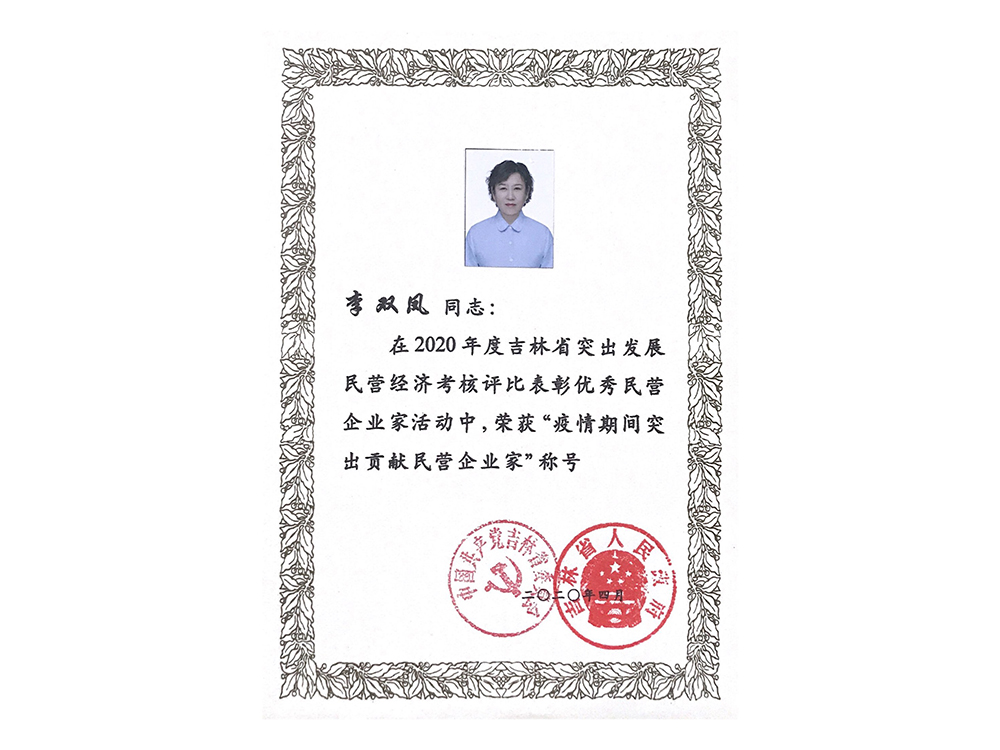 李双凤 同志：
在2020年度吉林省突出发展
民营经济考核评比表彰优秀民营
企业家活动中，荣获“疫情期间突
出贡献民营企业家”称号
中国共产党吉林省委员会
吉林省人民政府
二〇二〇年四月